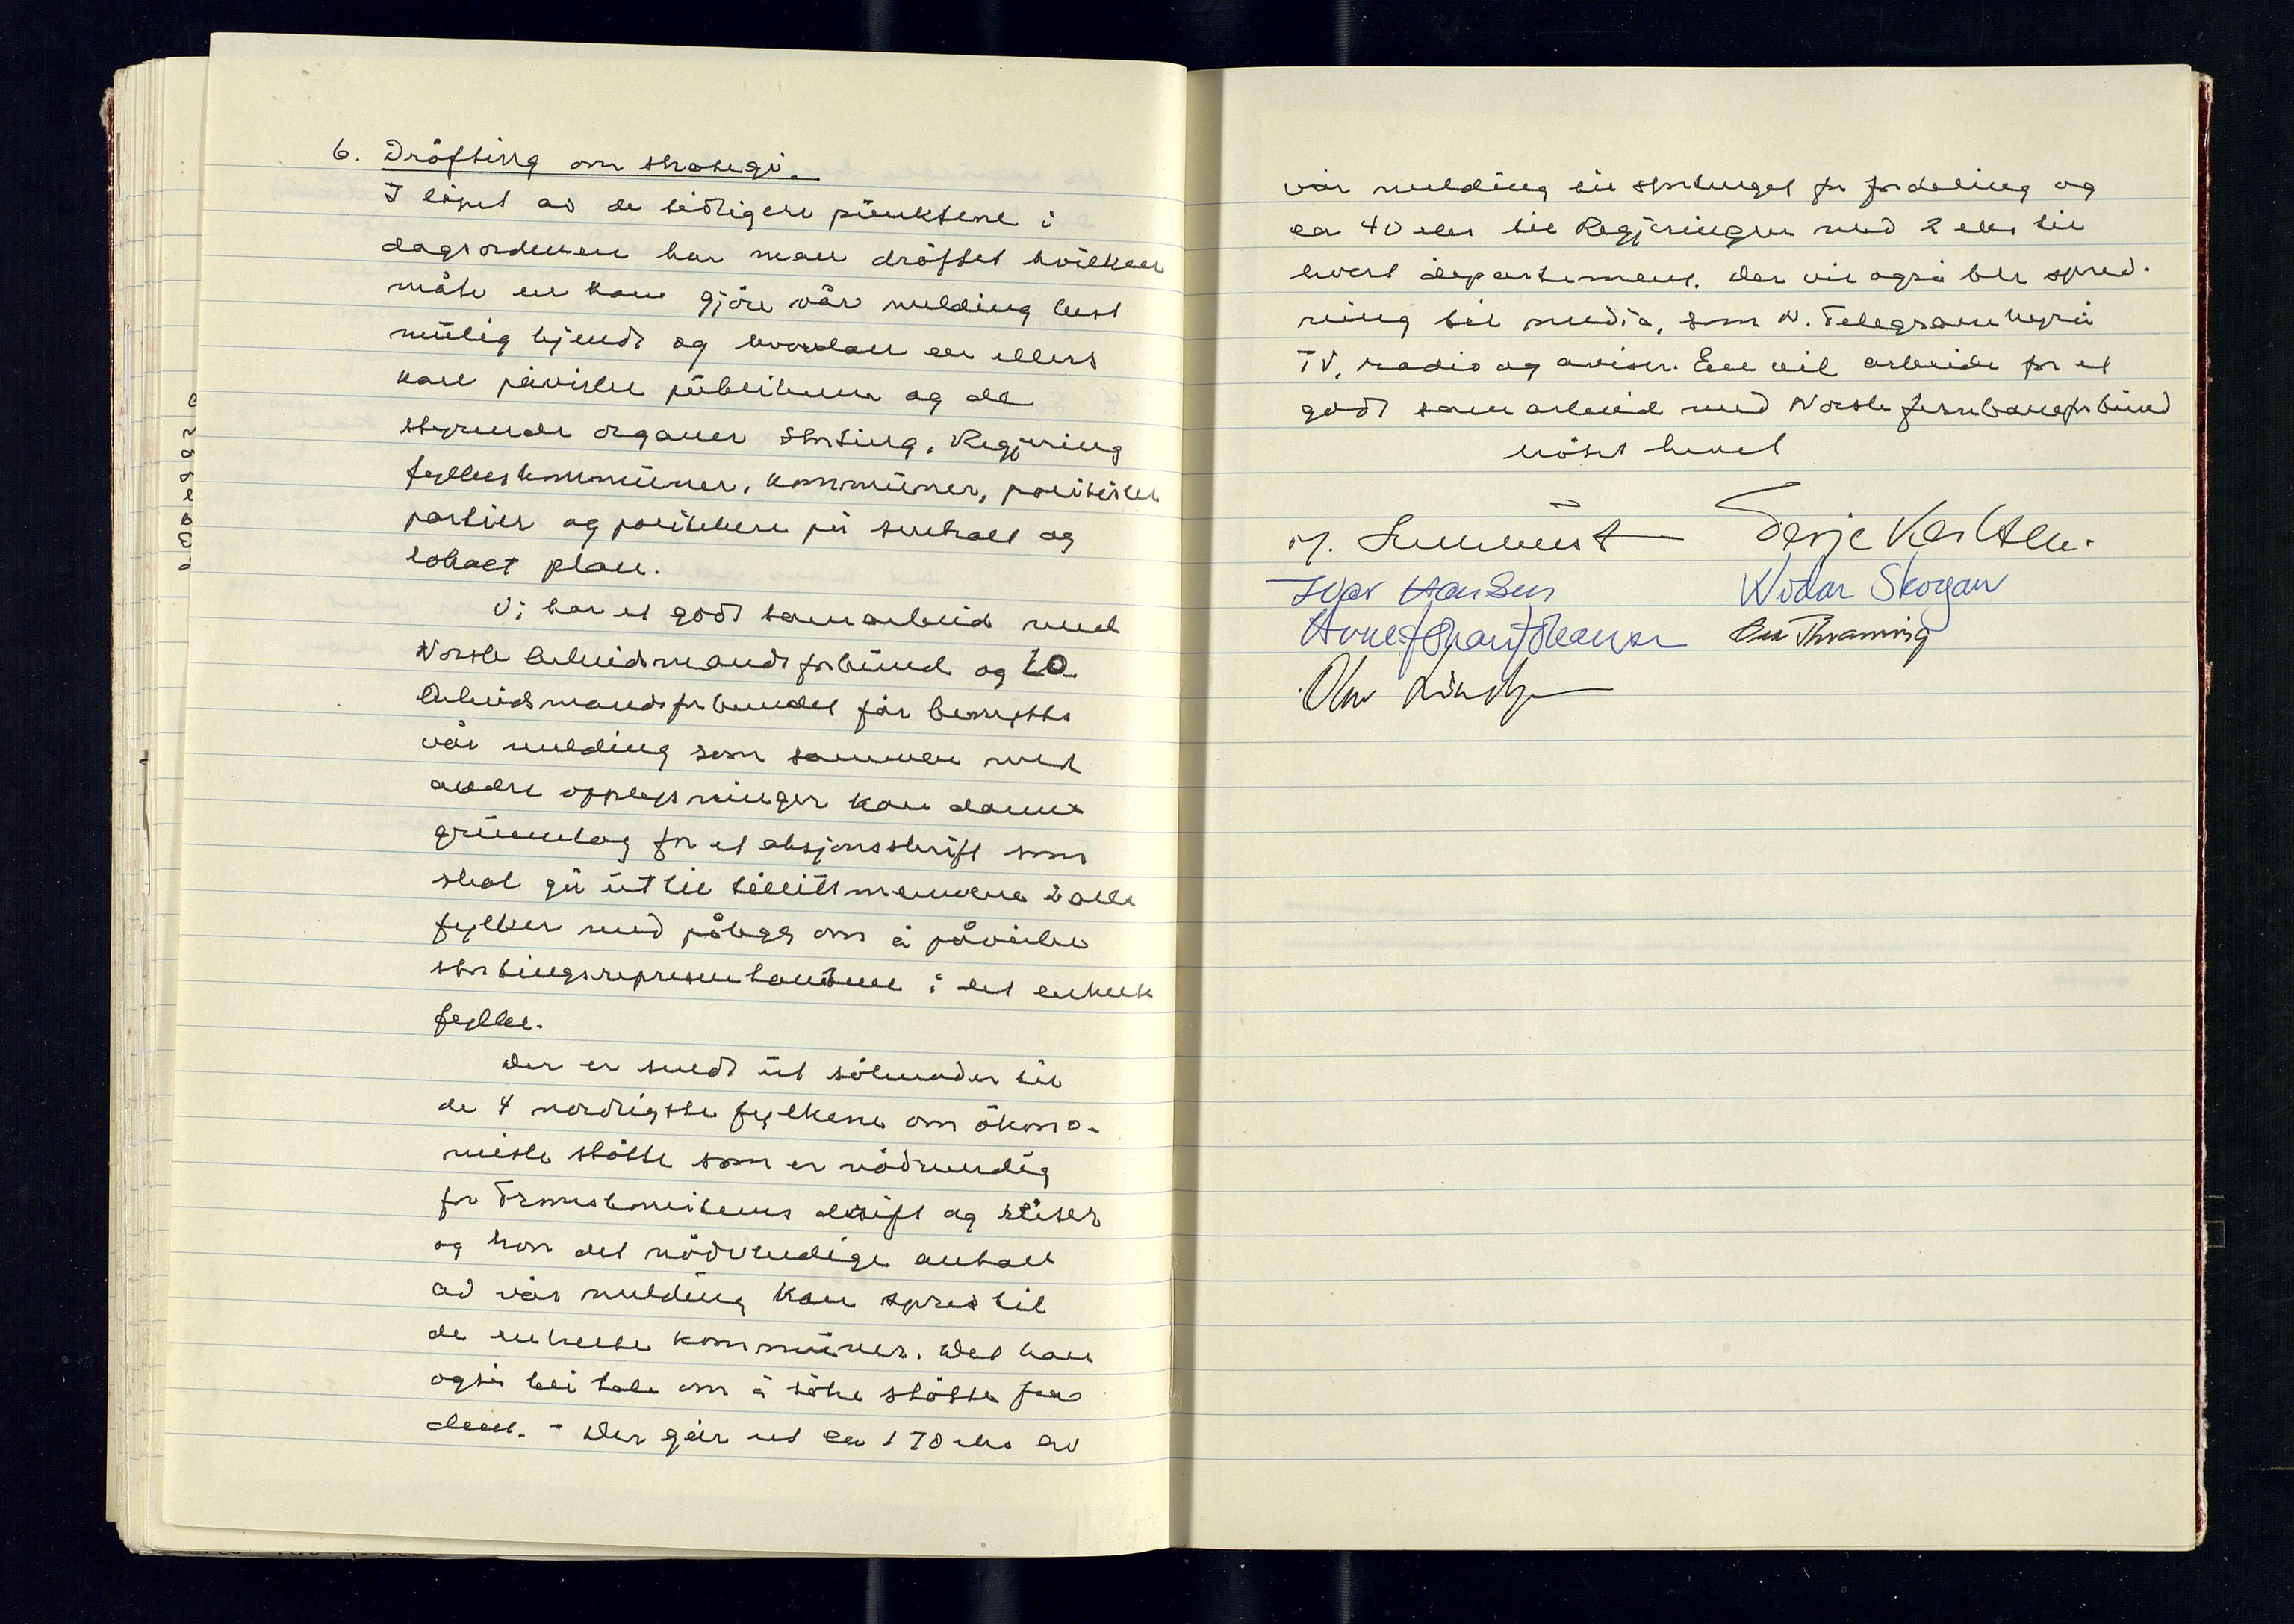 6. Dröfting om strategi.
I löpet av de tidligere punktene i
dagsordenen har man dröftet hvilken
måte en kan gjöre vår melding best
mulig kjendt og hvordan en ellers
kan påvirke publikum og de
styrende organer Storting, Regjering
fylkeskommuner, kommuner, politiske
partier og politikere på sentralt og
lokalt plan.
Vi har et godt samarbeid med
Norsk Arbeidsmandsforbund og LO
Arbeidsmandsforbundet får benytte
vår melding som sammen med
andre opplysninger kan danne
grunnlag for et aksjonsskrift som
skal gå ut til tillittsmennene i alle
fylker med pålegg om å påvirke
stortingsrepresentantene i det enkelte
fylke.
Der er sendt ut sölnader til
de 4 nordligste fylkene om ökono-
miske stötte som er nödvendig
for Tromskomiteens drift og reiser
og hvor det nödvendige antall
av vår melding kan spres til
de enkelte kommuner. Det kan
også bli tale om å söke stötte fra
dem. - Der går ut ca 170 eks av
vår melding til stortinget for fordeling og
ca 40 eks til Regjeringen med 2 eks til
hvert departement. Der vil også bli spred-
ning til media, som N. Telegrambyrå
TV, radio og aviser. En vil arbeide for et
godt samarbeid med Norsk Jernbaneforbund
Mötet hevet
Terje Karlsen.
Ivar Hansen Widar Skogan
Thraning
Olav